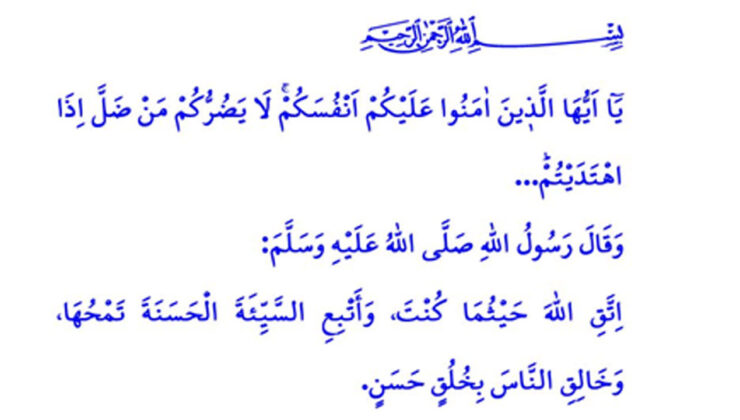 بِسْمِ اللهِ الرَّحْمٰنِ الرَّحِيمِ
يَٓا اَيُّهَا الَّذ۪ينَ اٰمَنُوا عَلَيْكُمْ اَنْفُسَكُمْۚ لَا يَضُرُّكُمْ مَنْ ضَلَّ اِذَا
اهْتَدَيْتُمْۜ...
وَقَالَ رَسُولُ اللهِ صَلَّى اللهُ عَلَيْهِ وَسَلَّمَ:
اِتَّقِ اللهَ حَيْثُمَا كُنْتَ، وَأَتْبِعِ السَّيِّئَةَ الْحَسَنَةَ تَمْحُهَا،
وَخَالِقِ النَّاسَ بِخُلُقٍ حَسَنٍ.